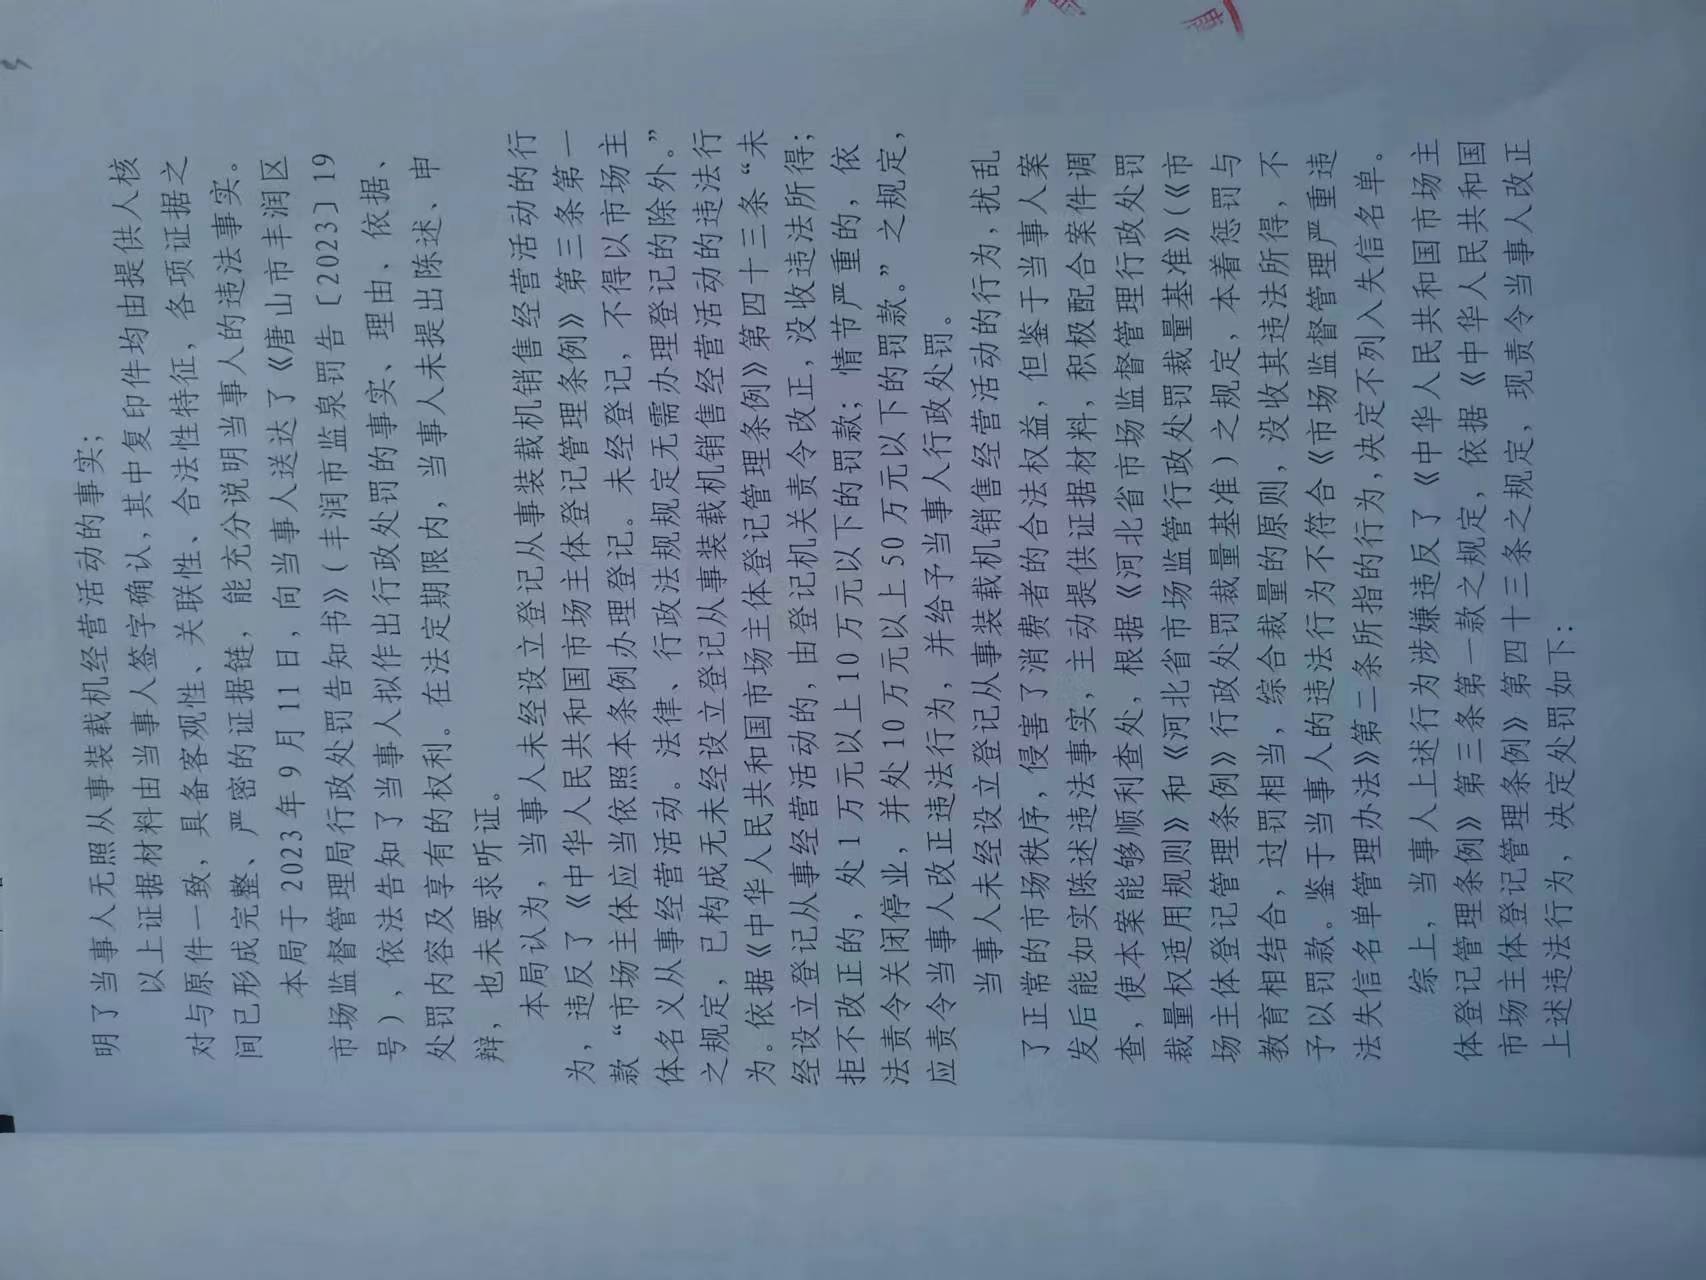 明了当事人无照从事装载机经营活动的事实；
以上证据材料由当事人签字确认，其中复印件均由提供人核
对与原件一致，具备客观性、关联性、合法性特征，各项证据之
间已形成完整、严密的证据链，能充分说明当事人的违法事实。
本局于2023年9月11日，向当事人送达了《唐山市丰润区
市场监督管理局行政处罚告知书》（丰润市监泉罚告〔2023〕19
号），依法告知了当事人拟作出行政处罚的事实、理由、依据、
处罚内容及享有的权利。在法定期限内，当事人未提出陈述、申
辩，也未要求听证。
本局认为，当事人未经设立登记从事装载机销售经营活动的行
为，违反了《中华人民共和国市场主体登记管理条例》第三条第一
款“市场主体应当依照本条例办理登记。未经登记，不得以市场主
体名义从事经营活动。法律、行政法规规定无需办理登记的除外。”
之规定，已构成无未经设立登记从事装载机销售经营活动的违法行
为。依据《中华人民共和国市场主体登记管理条例》第四十三条“未
经设立登记从事经营活动的，由登记机关责令改正，没收违法所得；
拒不改正的，处1万元以上10万元以下的罚款；情节严重的，依
法责令关闭停业，并处10万元以上50万元以下的罚款。”之规定，
应责令当事人改正违法行为，并给予当事人行政处罚。
当事人未经设立登记从事装载机销售经营活动的行为，扰乱
了正常的市场秩序，侵害了消费者的合法权益，但鉴于当事人案
发后能如实陈述违法事实，主动提供证据材料，积极配合案件调
查，使本案能够顺利查处，根据《河北省市场监督管理行政处罚
裁量权适用规则》和《河北省市场监管行政处罚裁量基准》（《市
场主体登记管理条例》行政处罚裁量基准）之规定，本着惩罚与
教育相结合，过罚相当，综合裁量的原则，没收其违法所得，不
予以罚款。鉴于当事人的违法行为不符合《市场监督管理严重违
法失信名单管理办法》第二条所指的行为，决定不列入失信名单。
综上，当事人上述行为涉嫌违反了《中华人民共和国市场主
体登记管理条例》第三条第一款之规定，依据《中华人民共和国
市场主体登记管理条例》第四十三条之规定，现责令当事人改正
上述违法行为，决定处罚如下：